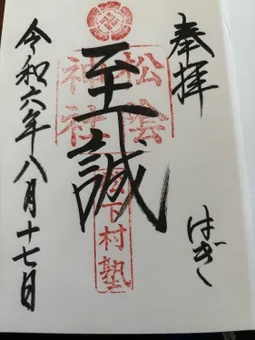 奉拝
はぎ
至誠
松陰
神社
松下村塾
令和六年八月十七日